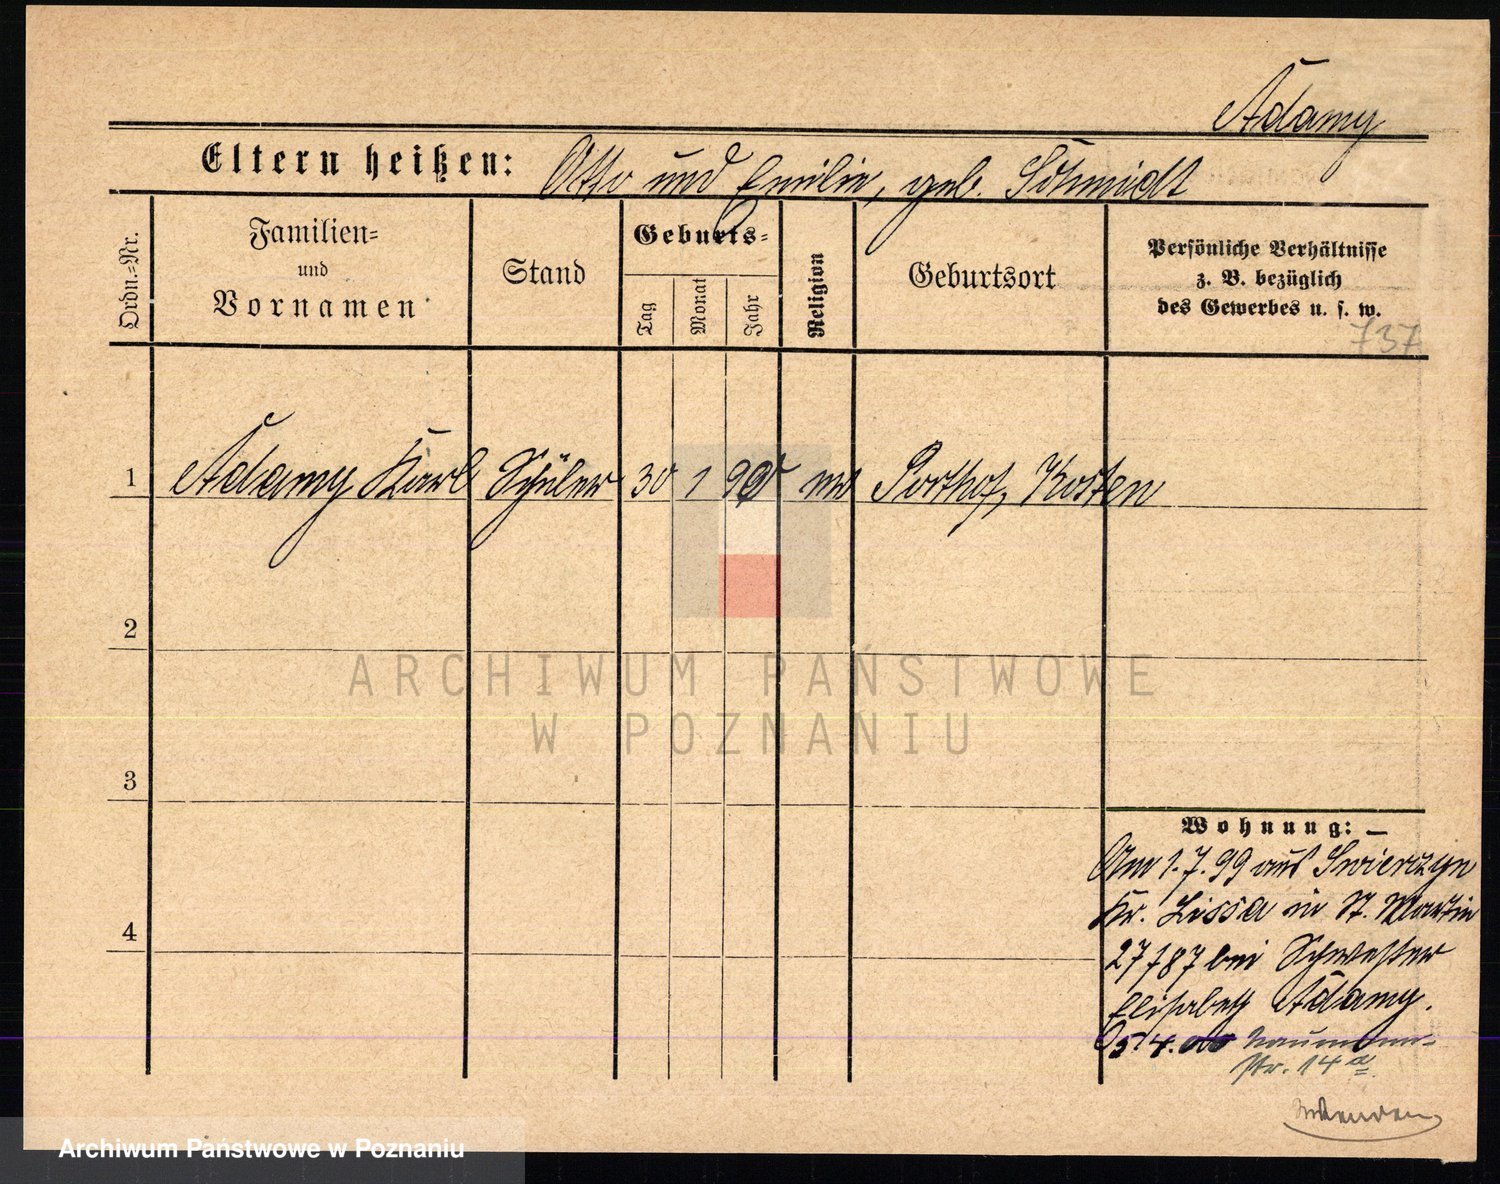 Adamy
Eltern heißen: Otto und Emilie, geb. Schmidt
Ordn.-Nr.
Familien-
und
Vornamen
Stand
Geburts-
Tag
Monat
Jahr
Religion
Geburtsort
Persönliche Verhältnisse
z. B. bezüglich
des Gewerbes u. s. w.
737
1 Adamy Karl Schüler 30 1 90 Kosten
2
3
4
ARCHIWUM PAŃSTWOWE
W POZNANIU
Wohnung: —
Am 1.7.99 aus Swierczyn
Kr. Lissa in St. Martin
27 787 bei Schwester
Elisabeth Adamy.
5/4. 00 Naumann-
str. 14 a
Wenden
Archiwum Państwowe w Poznaniu